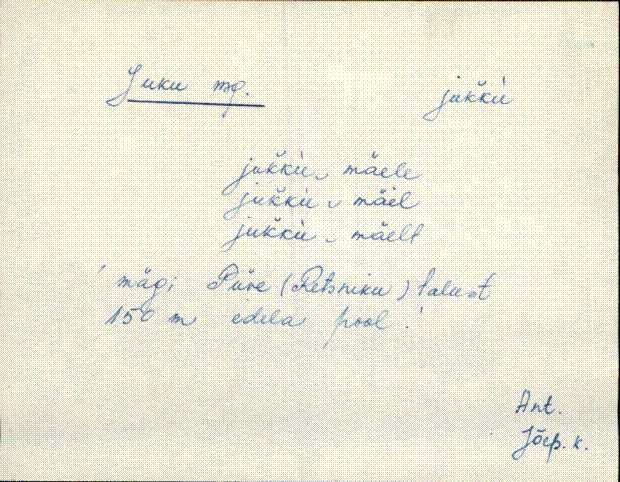 Juku mg. jukkù
jukkù⌣mäele
jukkù⌣mäel
jukkù⌣mäelt
' mägi Püve (Retsniku) talust
150 m edela pool !
Ant.
Jõep. k.